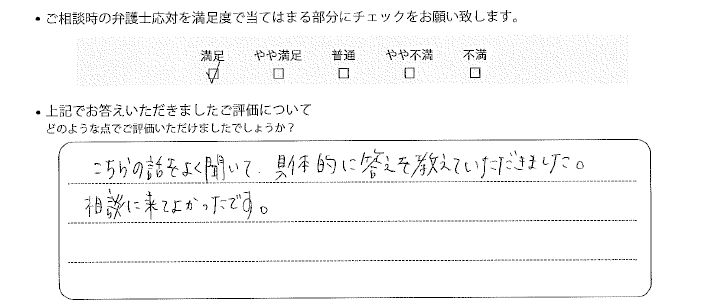 ・ご相談時の弁護士応対を満足度で当てはまる部分にチェックをお願い致します。
満足 やや満足 普通 やや不満 不満
☑ □ □ □ □
・上記でお答えいただきましたご評価について
どのような点でご評価いただけましたでしょうか？
こちらの話をよく聞いて、具体的に答えを教えていただきました。
相談に来てよかったです。